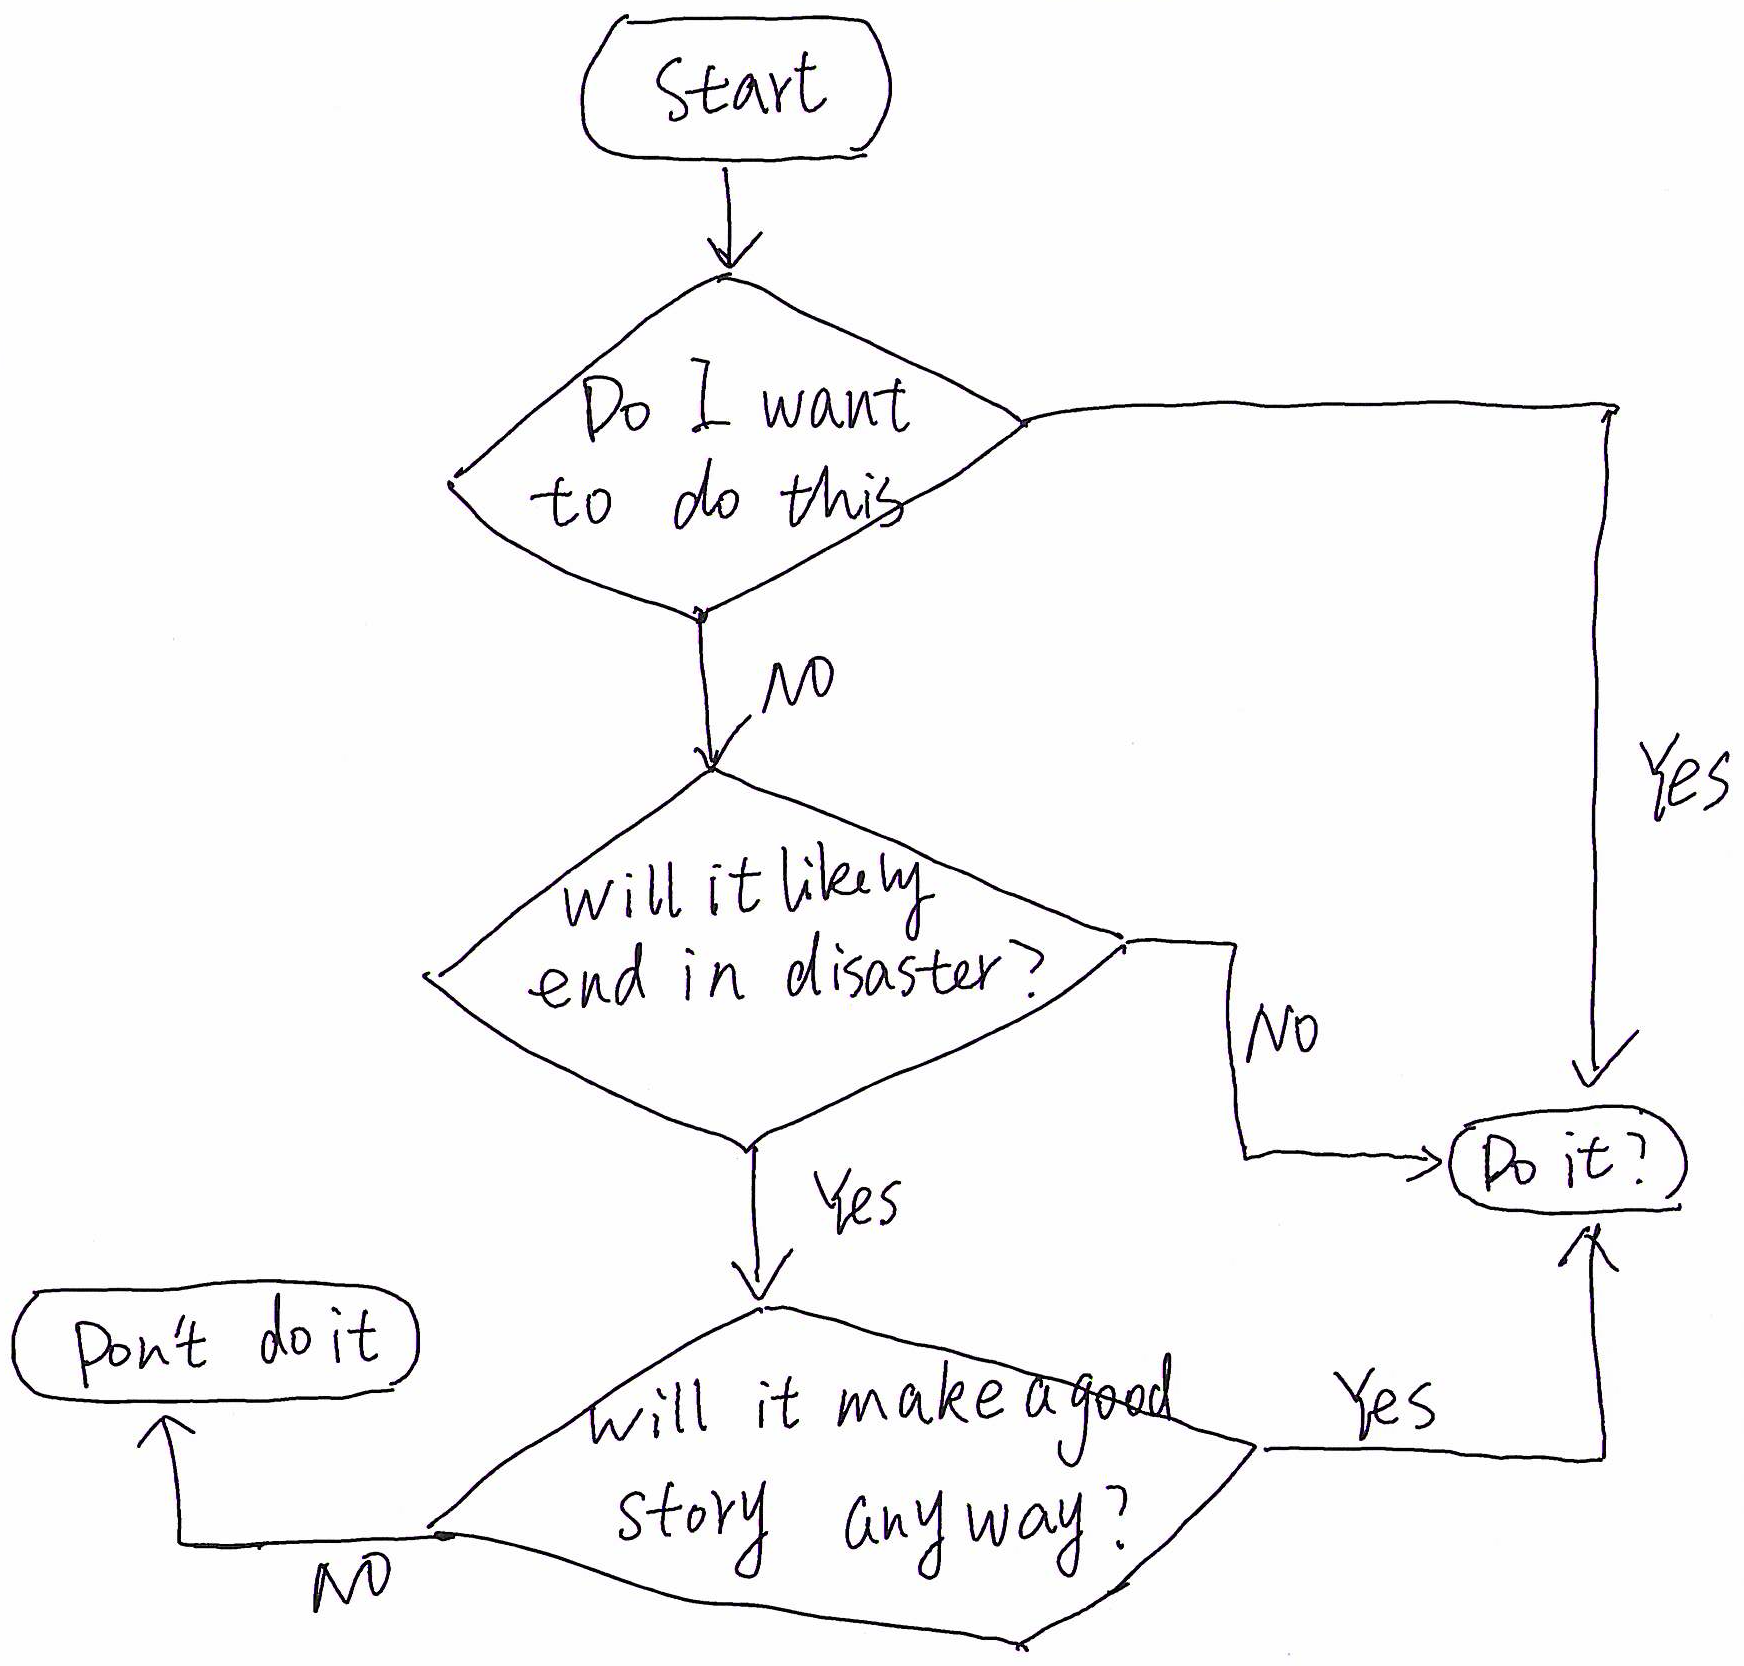 Start
Do I want
to do this
NO
Yes
Will it likely
end in disaster?
NO
Do it?
Yes
Don't do it
Will it make a good
story anyway?
Yes
NO